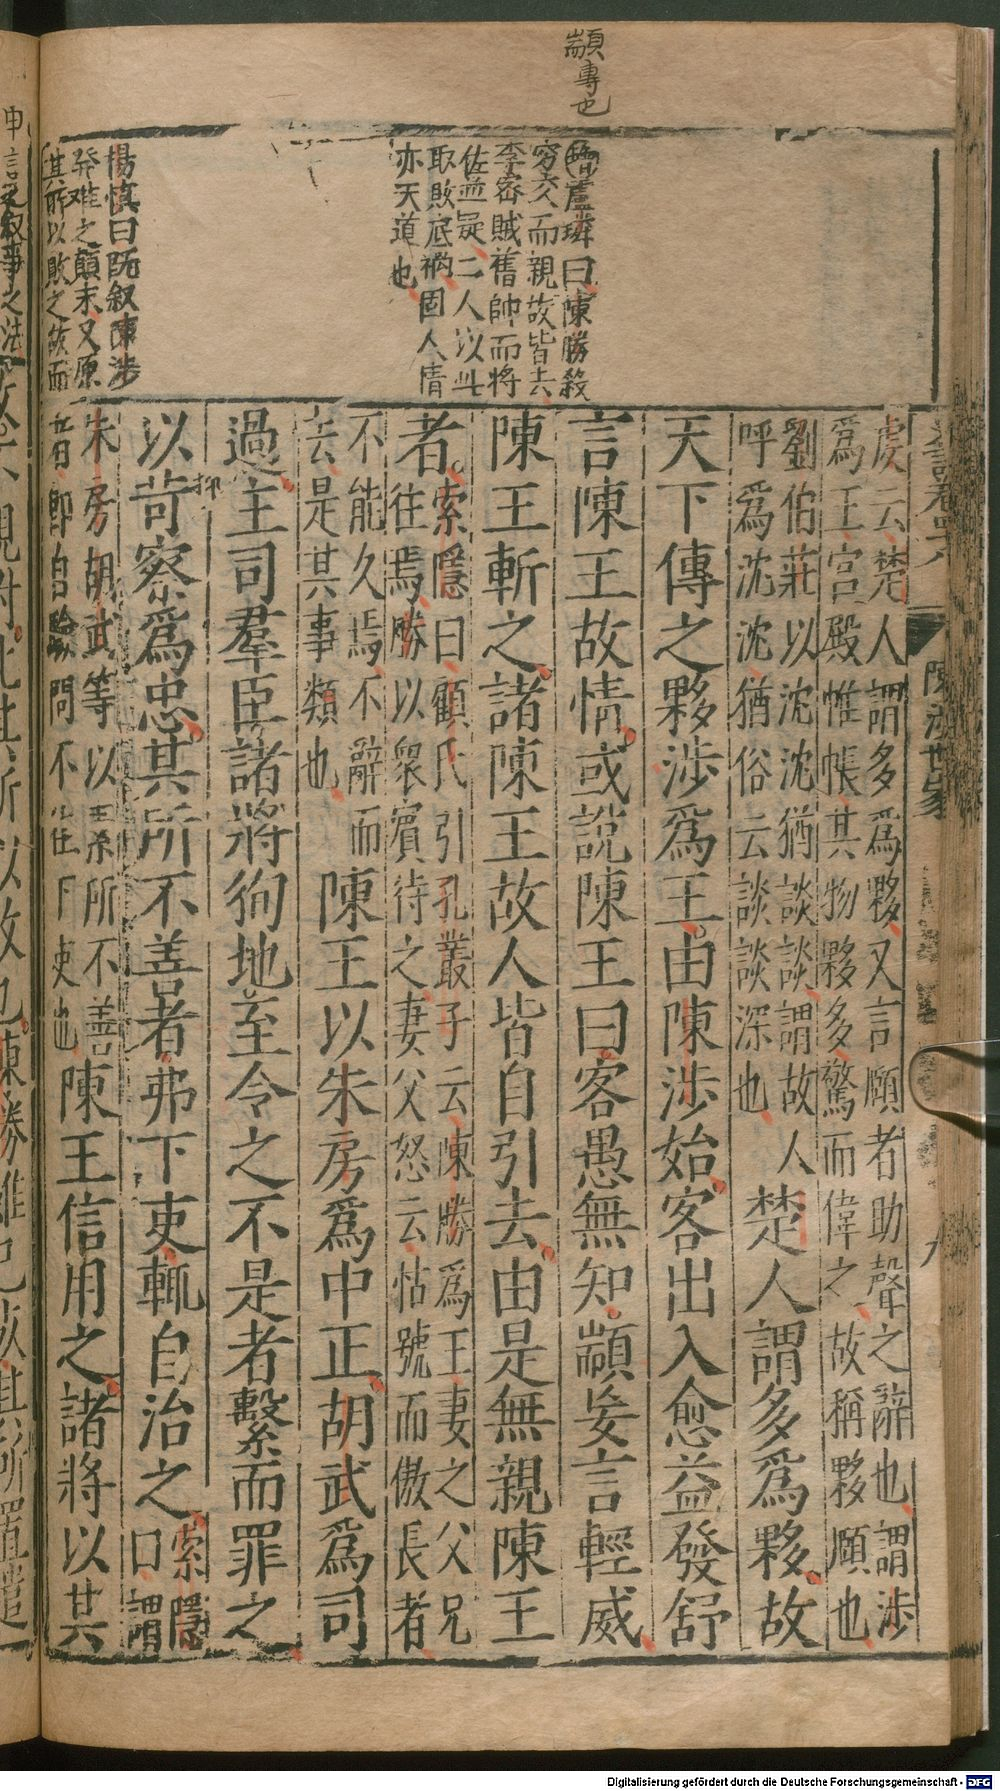 顓專也
盧璘曰陳勝殺
窮交而親故皆去
李密賊舊帥而將
佐並疑二人以此
取敗底禍固人情
亦天道也
楊慎曰既叙陳涉
發难之顛末又原
其所以敗之故而
史記卷四十八
陳涉世家
九
服虔云楚人謂多為夥又言頤者助聲之辭也謂涉
為王宮殿帷帳其物夥多驚而偉之故稱夥頤也
劉伯莊以沈沈猶談談謂故人
呼為沈沈猶俗云談談深也
楚人謂多為夥故
天下傳之夥涉為王由陳涉始客出入愈益發舒
言陳王故情或說陳王曰客愚無知顓妄言輕威
陳王斬之諸陳王故人皆自引去由是無親陳王
者
索隱曰顧氏引孔叢子云陳勝為王妻之父兄
往焉勝以衆賓待之妻父怒云怙號而傲長者
不能久焉不辭而
去是其事類也
陳王以朱房為中正胡武為司
過主司羣臣諸將徇地至令之不是者繫而罪之
以苛察為忠其所不善者弗下吏輒自治之
索隱
曰謂
朱房胡武等以素所不善
者即自驗問不往下吏也
陳王信用之諸將以其
Digitalisierung gefördert durch die Deutsche Forschungsgemeinschaft - DFG